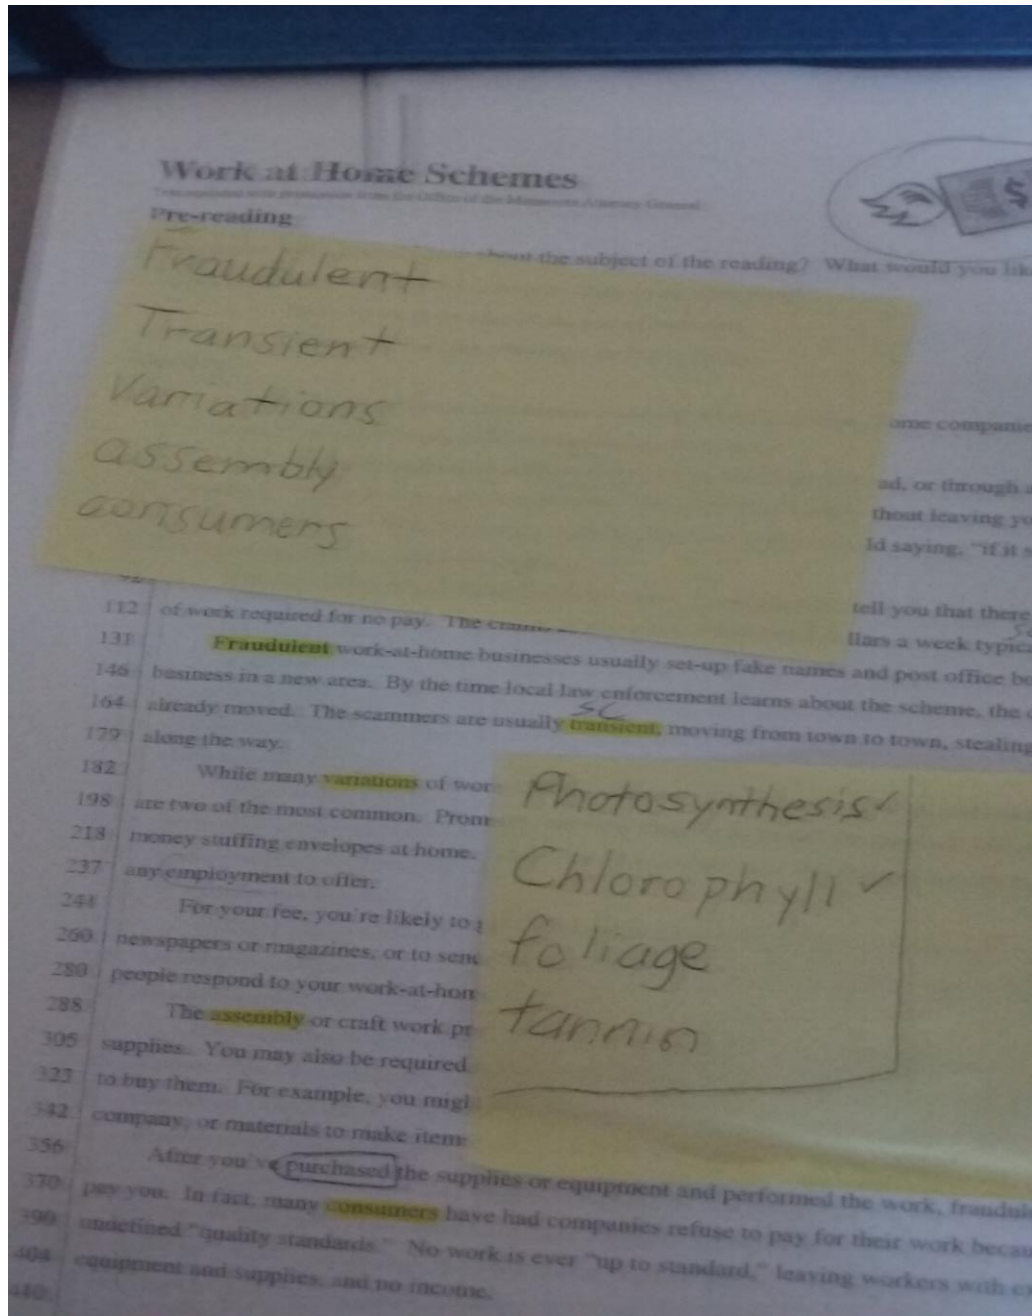 Work at Home Schemes
Pre-reading
about the subject of the reading? What would you lik
$
Fraudulent
Transient
Variations
assembly
consumers
ome companie
ad, or through a
thout leaving yo
ld saying, "if it s
tell you that there
llars a week typica
112 of work required for no pay. The
131 Fraudulent work-at-home businesses usually set-up fake names and post office bo
146 business in a new area. By the time local law enforcement learns about the scheme, the
SC
164 already moved. The scammers are usually transient, moving from town to town, stealing
179 along the way.
182 While many variations of wor
198 are two of the most common. Prom
218 money stuffing envelopes at home.
237 any employment to offer.
244 For your fee, you're likely to
260 newspapers or magazines, or to send
280 people respond to your work-at-hom
288 The assembly or craft work pr
305 supplies. You may also be required
323 to buy them. For example, you migh
342 company, or materials to make item
Photosynthesis ✓
Chlorophyll ✓
foliage
tannin
356 After you've purchased the supplies or equipment and performed the work, fraudule
370 pay you. In fact, many consumers have had companies refuse to pay for their work becau
390 undefined "quality standards." No work is ever "up to standard," leaving workers with
404 equipment and supplies, and no income.